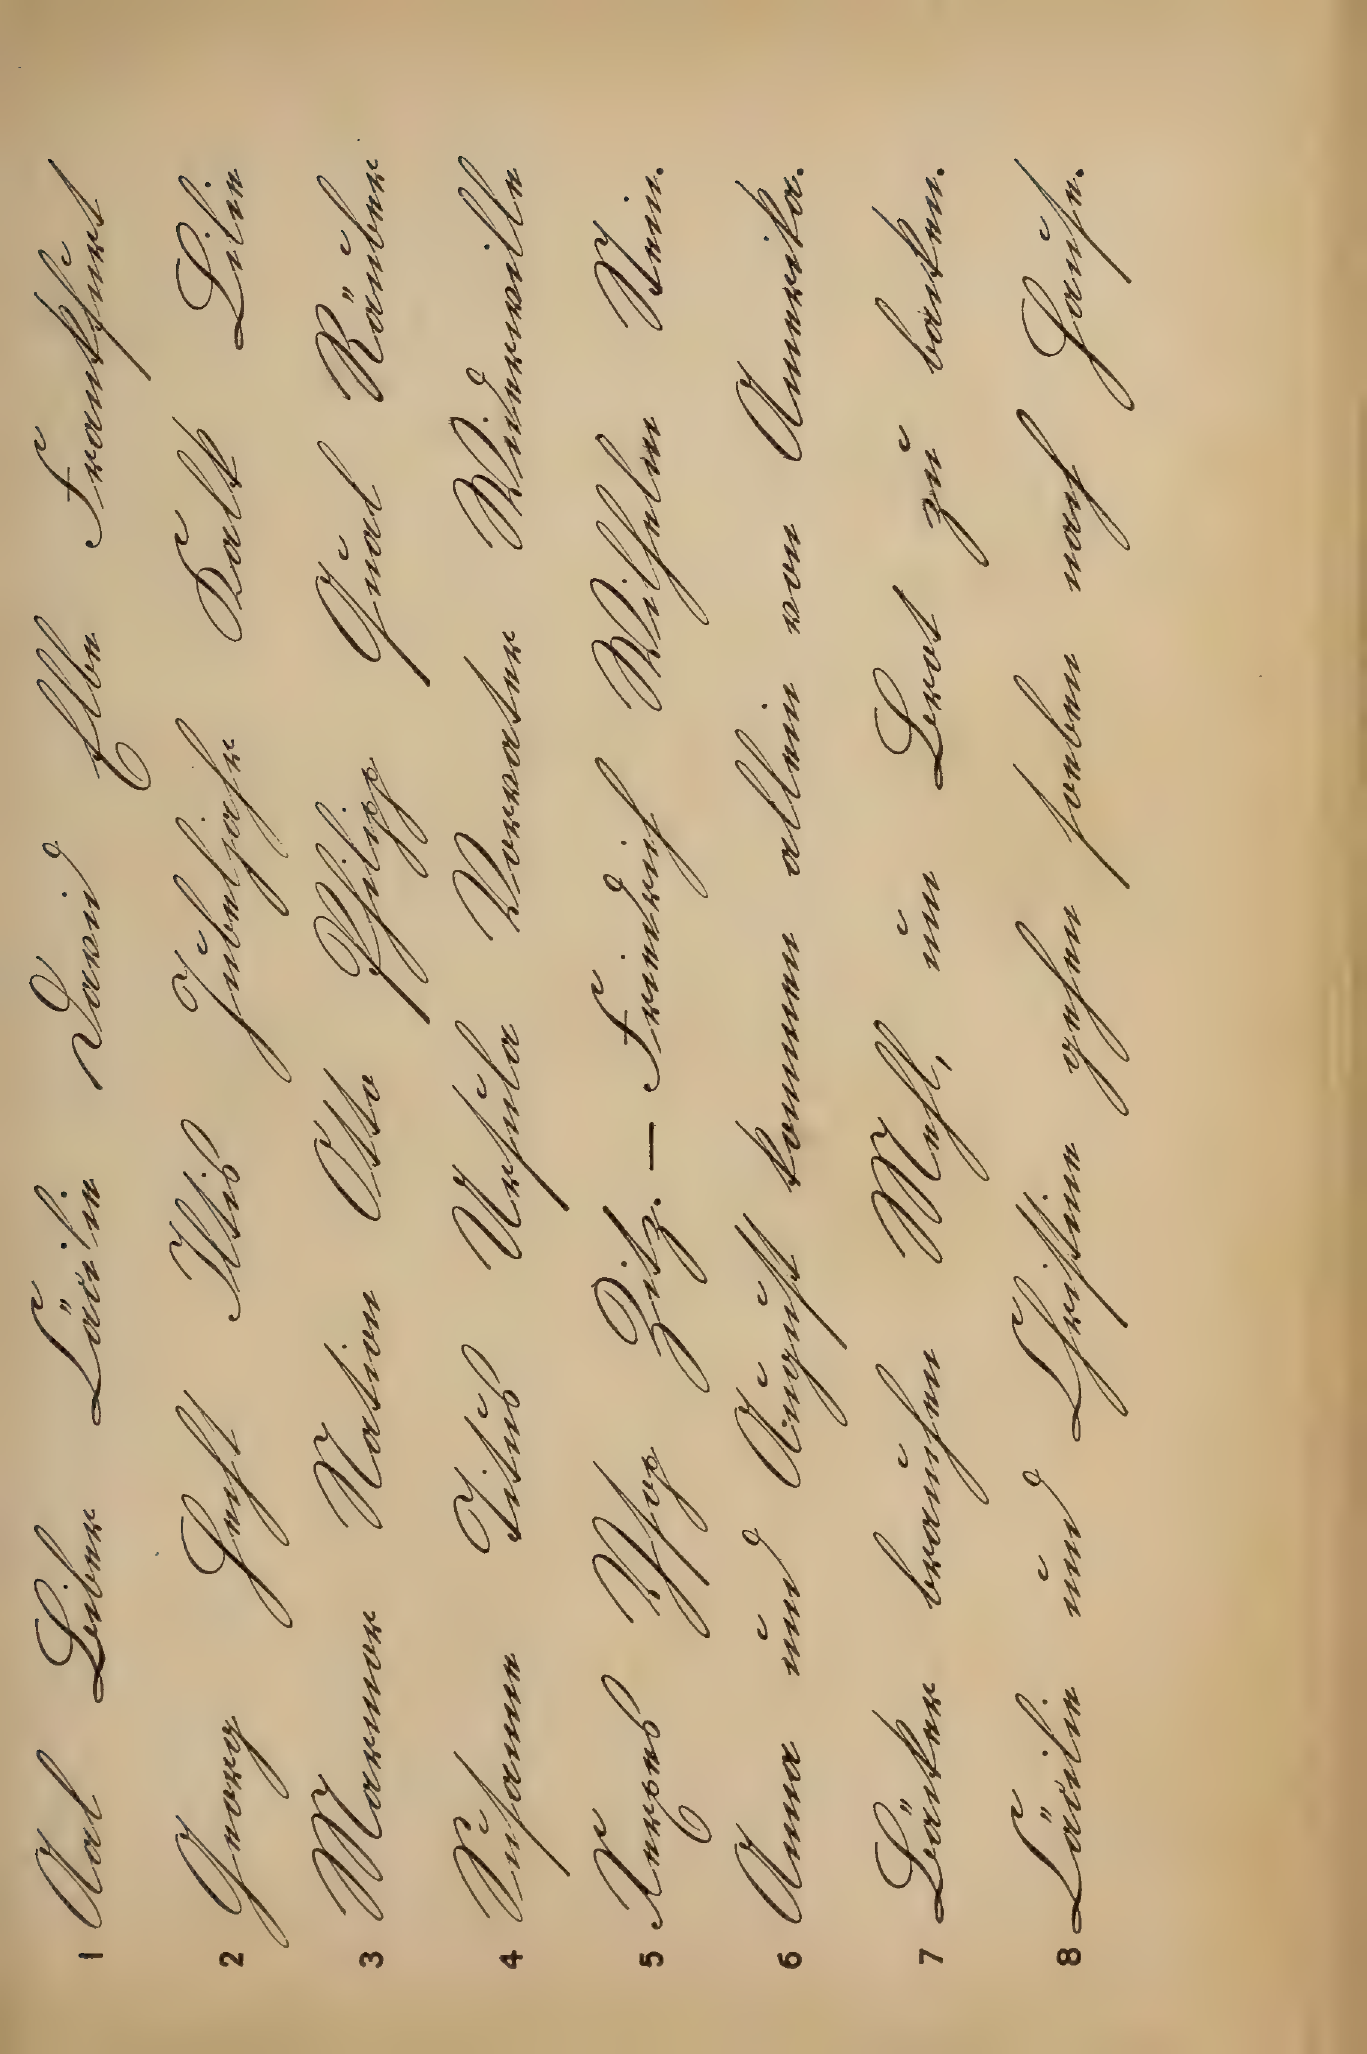 1 Aal Biber Cäcilie David Elbe Frankfurt
2 Georg Hecht Iltis Jubeljahr Kalk Lilie
3 Marmor Nation Otto Philipp Qual Räuber
4 Susanne Titus Ursula Vorvater Widerwille
5 Xerxes Ysop Zitz. — Friedrich Wilhelm
6 Anna und August kommen allein von Amerika.
7 Bäcker brauchen Mehl, um Brot zu backen.
8 Cäcilie und Christine gehen soeben nach Hause.